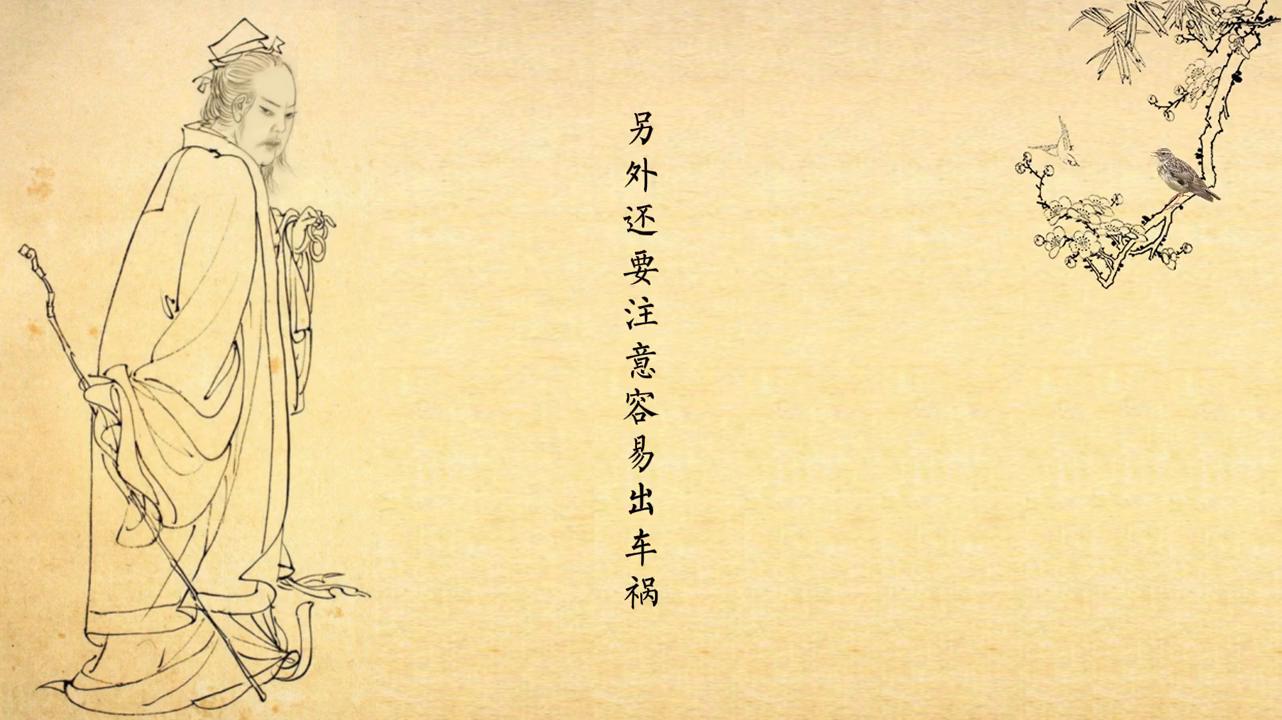 另外还要注意容易出车祸